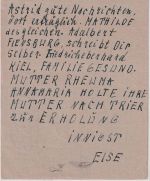 Astrid gute Nachrichten,
dort erträglich. MATHILDE
desgleichen. Adalbert
FLENSBURG, schreibt Dir
selber. Friedrich Eberhard
KIEL, FAMILIE GESUND.
MUTTER RHEUMA
ANNAMARIA HOLTE IHRE
MUTTER NACH TRIER
ZUR ERHOLUNG
INNIGST
ELSE